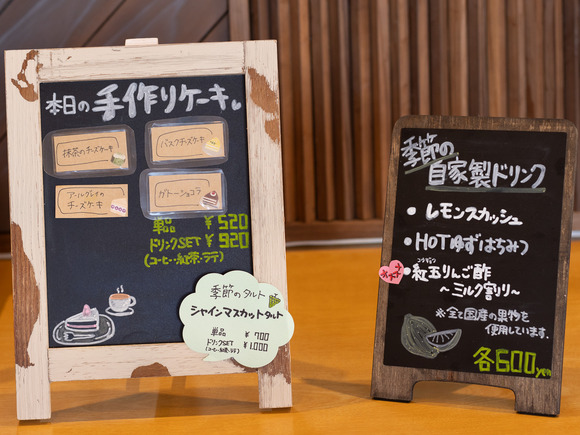 本日の手作りケーキ
抹茶のチーズケーキ
バスクチーズケーキ
アールグレイの
チーズケーキ
ガトーショコラ
単品 ¥520
ドリンクSET ¥920
(コーヒー・紅茶・ラテ)
季節のタルト
シャインマスカットタルト
単品 ¥700
ドリンクSET ¥1,000
(コーヒー・紅茶・ラテ)
季節の
自家製ドリンク
• レモンスカッシュ
• HOTゆずはちみつ
• 紅玉りんご酢
コウギョク
～ミルク割り～
※全て国産の果物を
使用しています.
各600yen